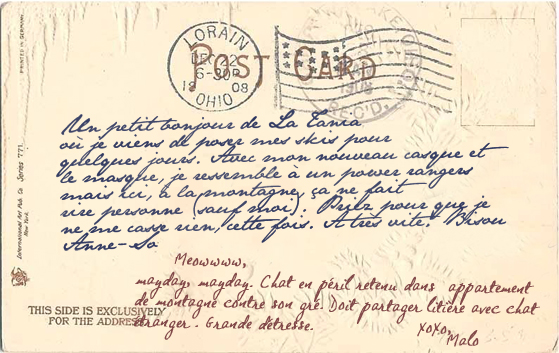 PRINTED IN GERMANY
International Art Pub. Co. Series 771.
New York.
LORAIN
DEC 22
6-30P
1908
OHIO
POST CARD
1908
REC'D.
Un petit bonjour de La Tania
où je viens de poser mes skis pour
quelques jours. Avec mon nouveau casque et
le masque, je ressemble à un power rangers
mais ici, à la montagne, ça ne fait
rire personne (sauf moi). Priez pour que je
ne me casse rien, cette fois. A très vite. Bisou
Anne-So
Meowwww,
mayday, mayday. Chat en péril retenu dans appartement
de montagne contre son gré. Doit partager litière avec chat
étranger. Grande détresse.
xoxo,
Malo
THIS SIDE IS EXCLUSIVELY
FOR THE ADDRESS